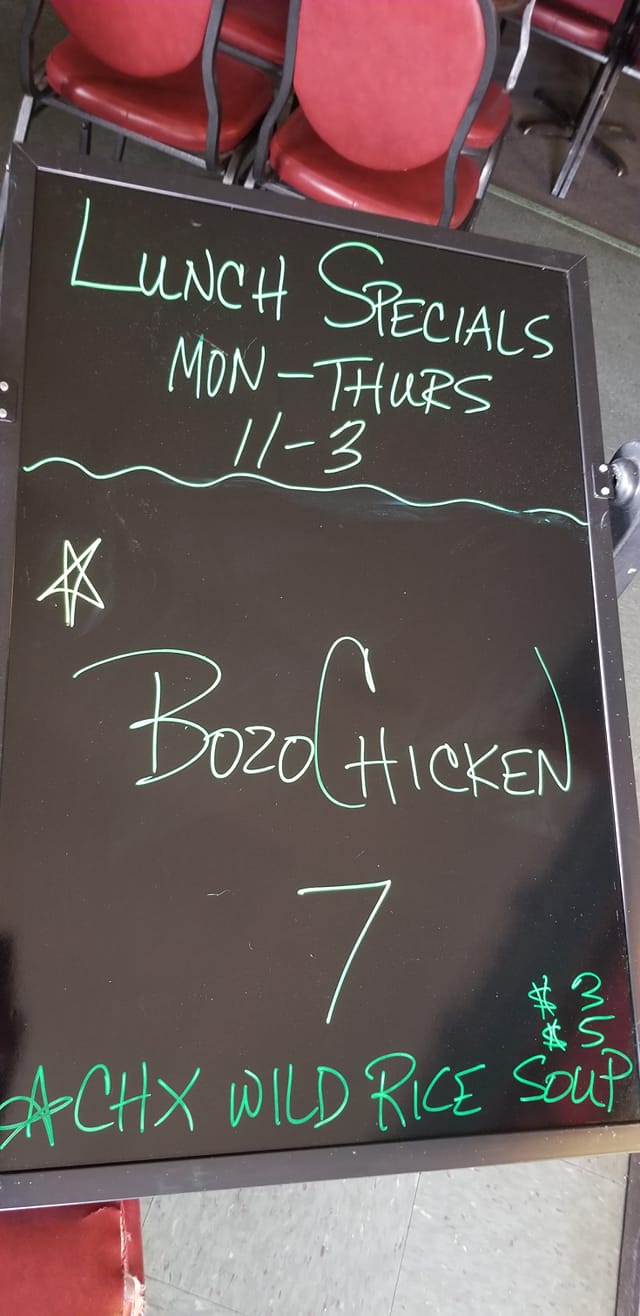 LUNCH SPECIALS
MON-THURS
11-3
BOZO CHICKEN
7
$3
$5
CHX WILD RICE SOUP